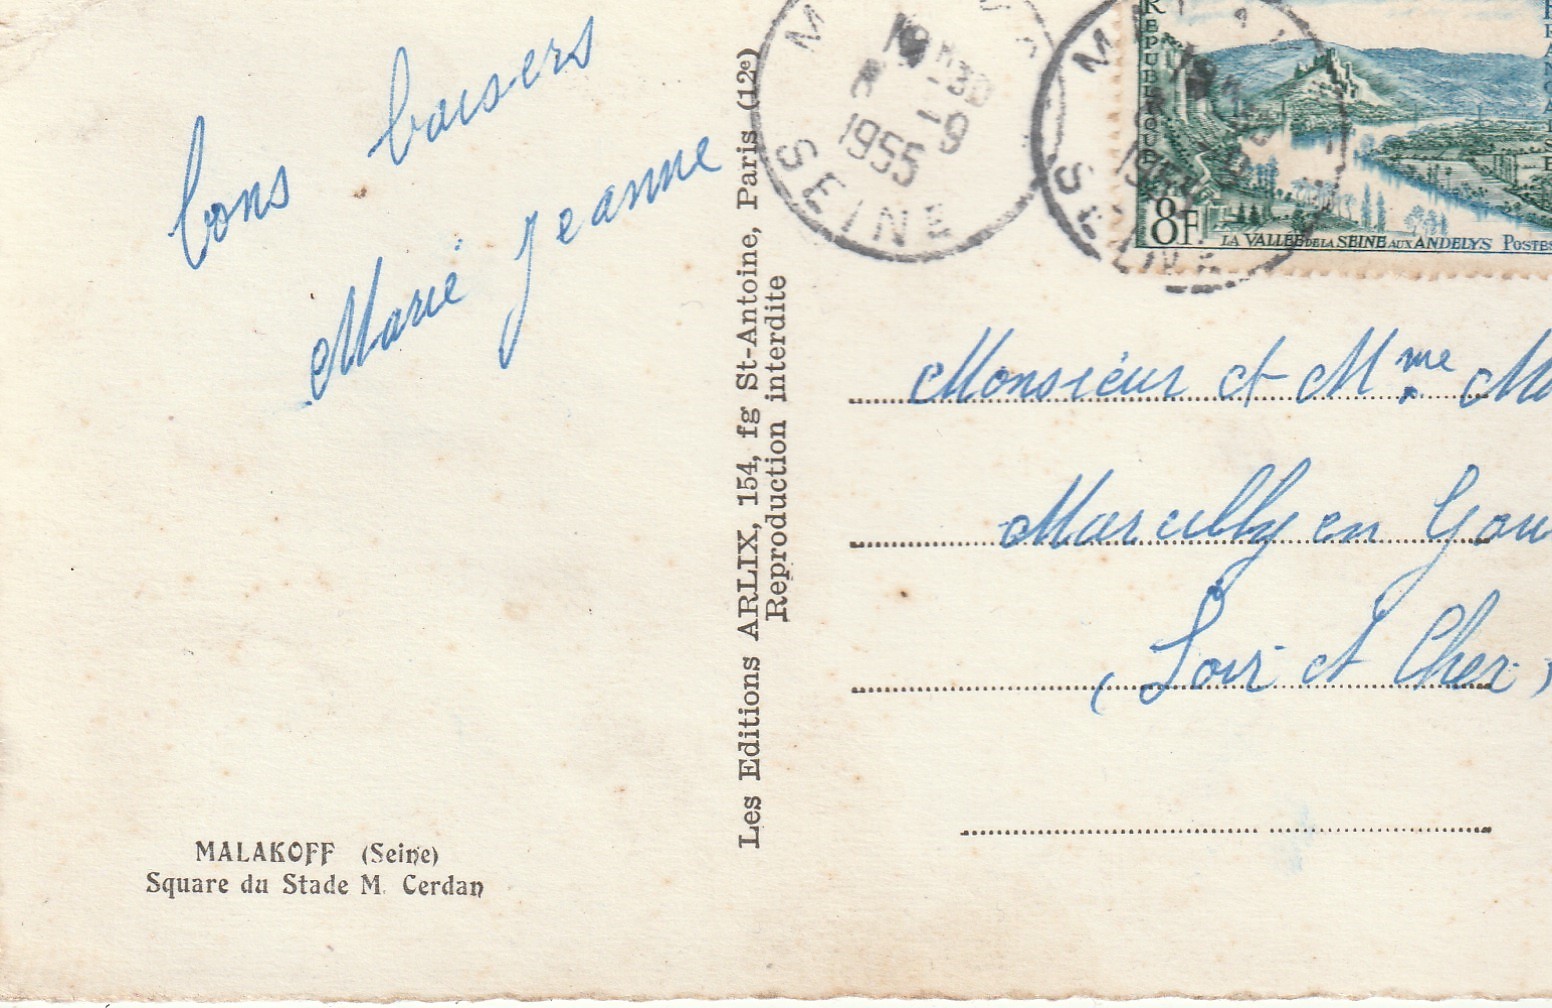 bons baisers
Marie Jeanne
MALAKOFF (Seine)
Square du Stade M. Cerdan
Les Editions ARLIX, 154, fg St-Antoine, Paris (12e)
Reproduction interdite
1955
SEINE
SEINE
REPUBLIQUE
FRANCAISE
8F
LA VALLEE DE LA SEINE AUX ANDELYS POSTES
Monsieur et Mme
Marcilly en
(Loir et Cher)